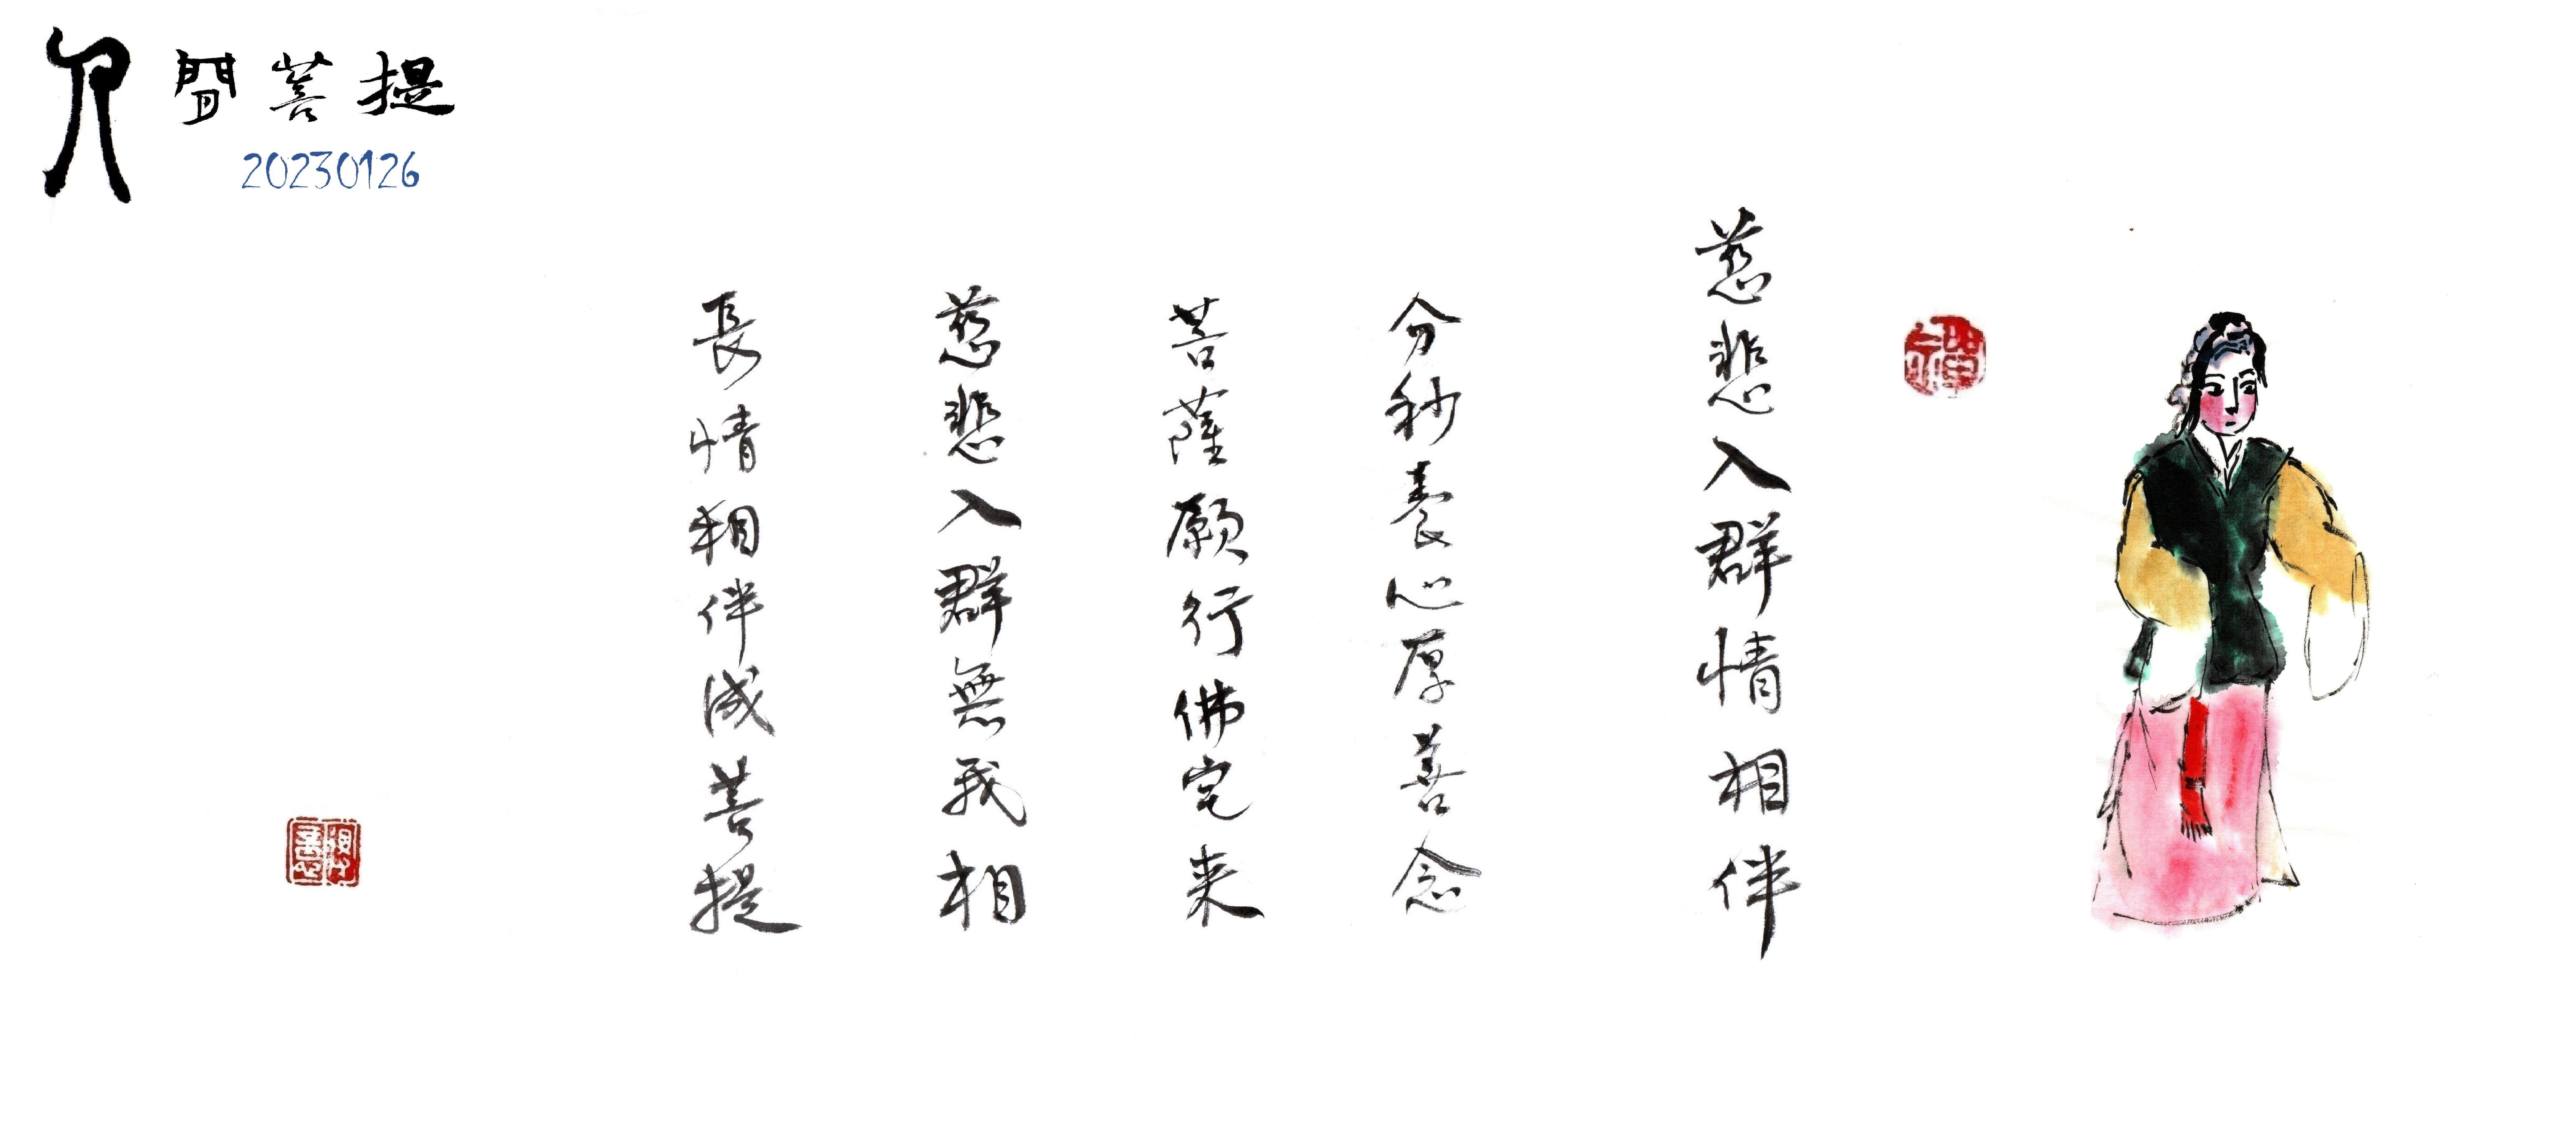 人間菩提
20230126
慈悲入群情相伴
分秒養心厚善念
菩薩願行佛宅来
慈悲入群無我相
長情相伴成菩提
禪